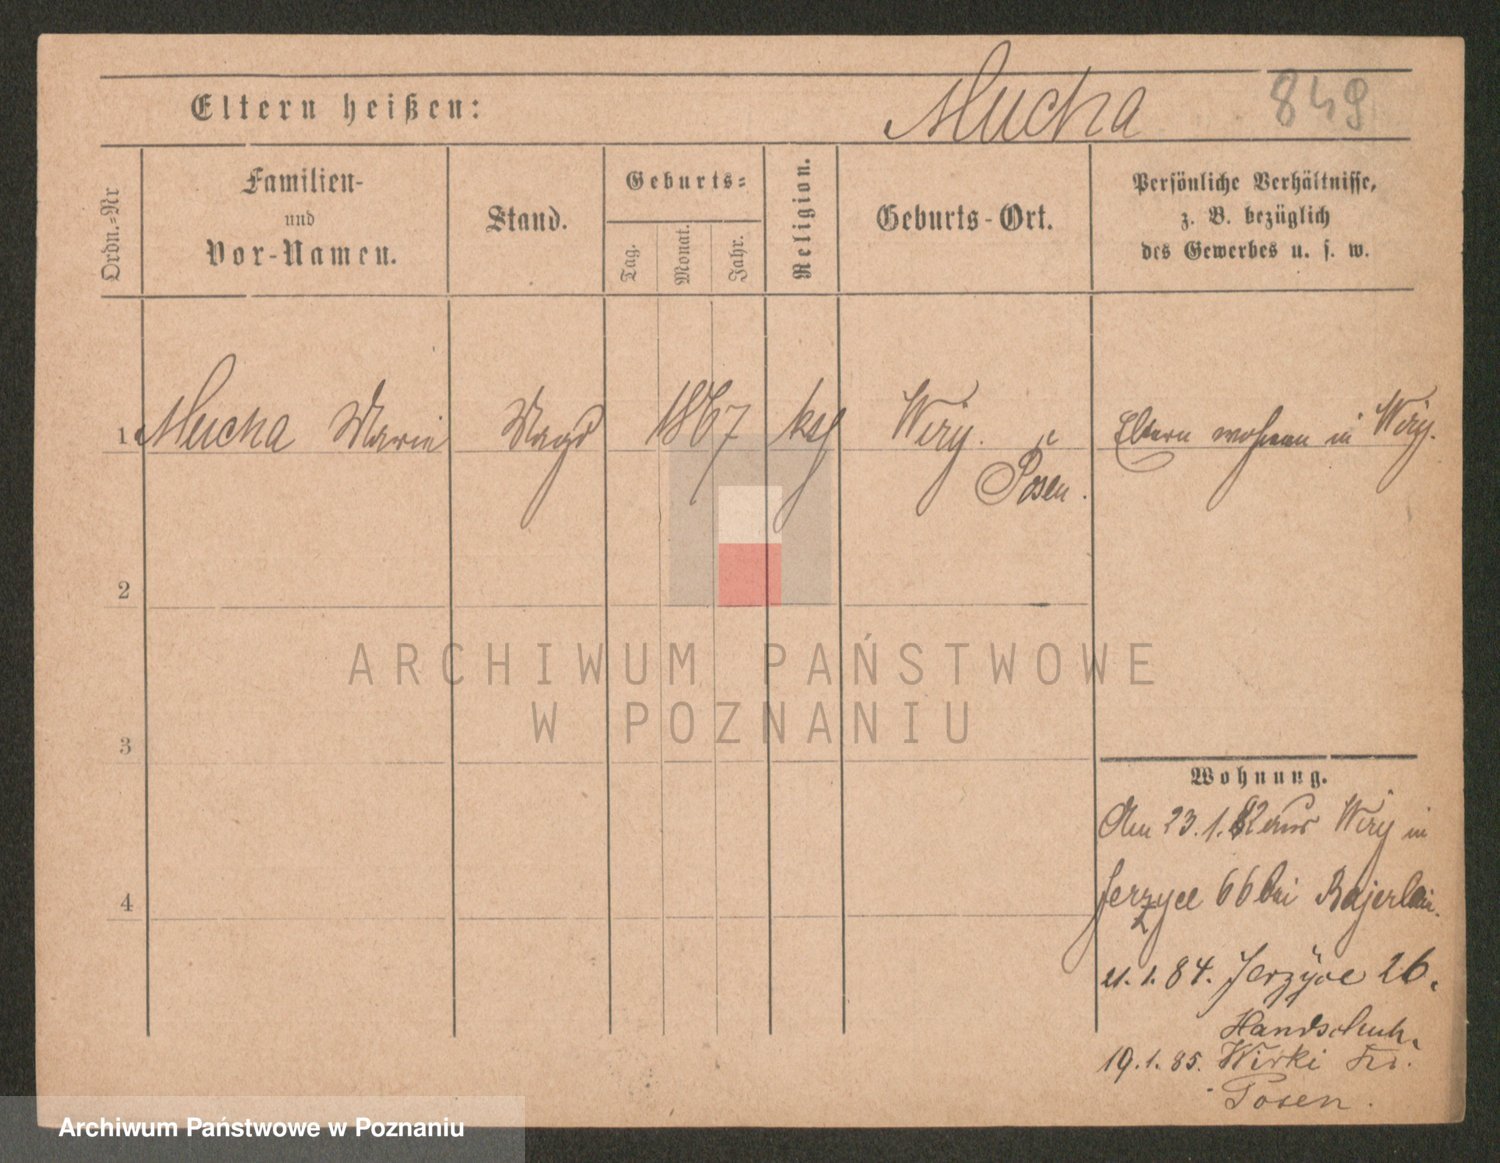 Eltern heißen: Mucha 849
Ordn.-Nr
Familien-
und
Vor-Namen.
Stand.
Geburts=
Tag.
Monat.
Jahr.
Religion.
Geburts-Ort.
Persönliche Verhältnisse,
z. B. bezüglich
des Gewerbes u. s. w.
1 Mucha Marie Magd 1867 Wiry. Eltern wohnen in Wiry.
Posen.
2
ARCHIWUM PAŃSTWOWE
W POZNANIU
3
Wohnung.
Am 23.1.82 aus Wiry in
Jerzyce 66 bei
4
21.1.84. Jerzyce 26.
Handschuh
19.1.85. Wirki
Posen.
Archiwum Państwowe w Poznaniu